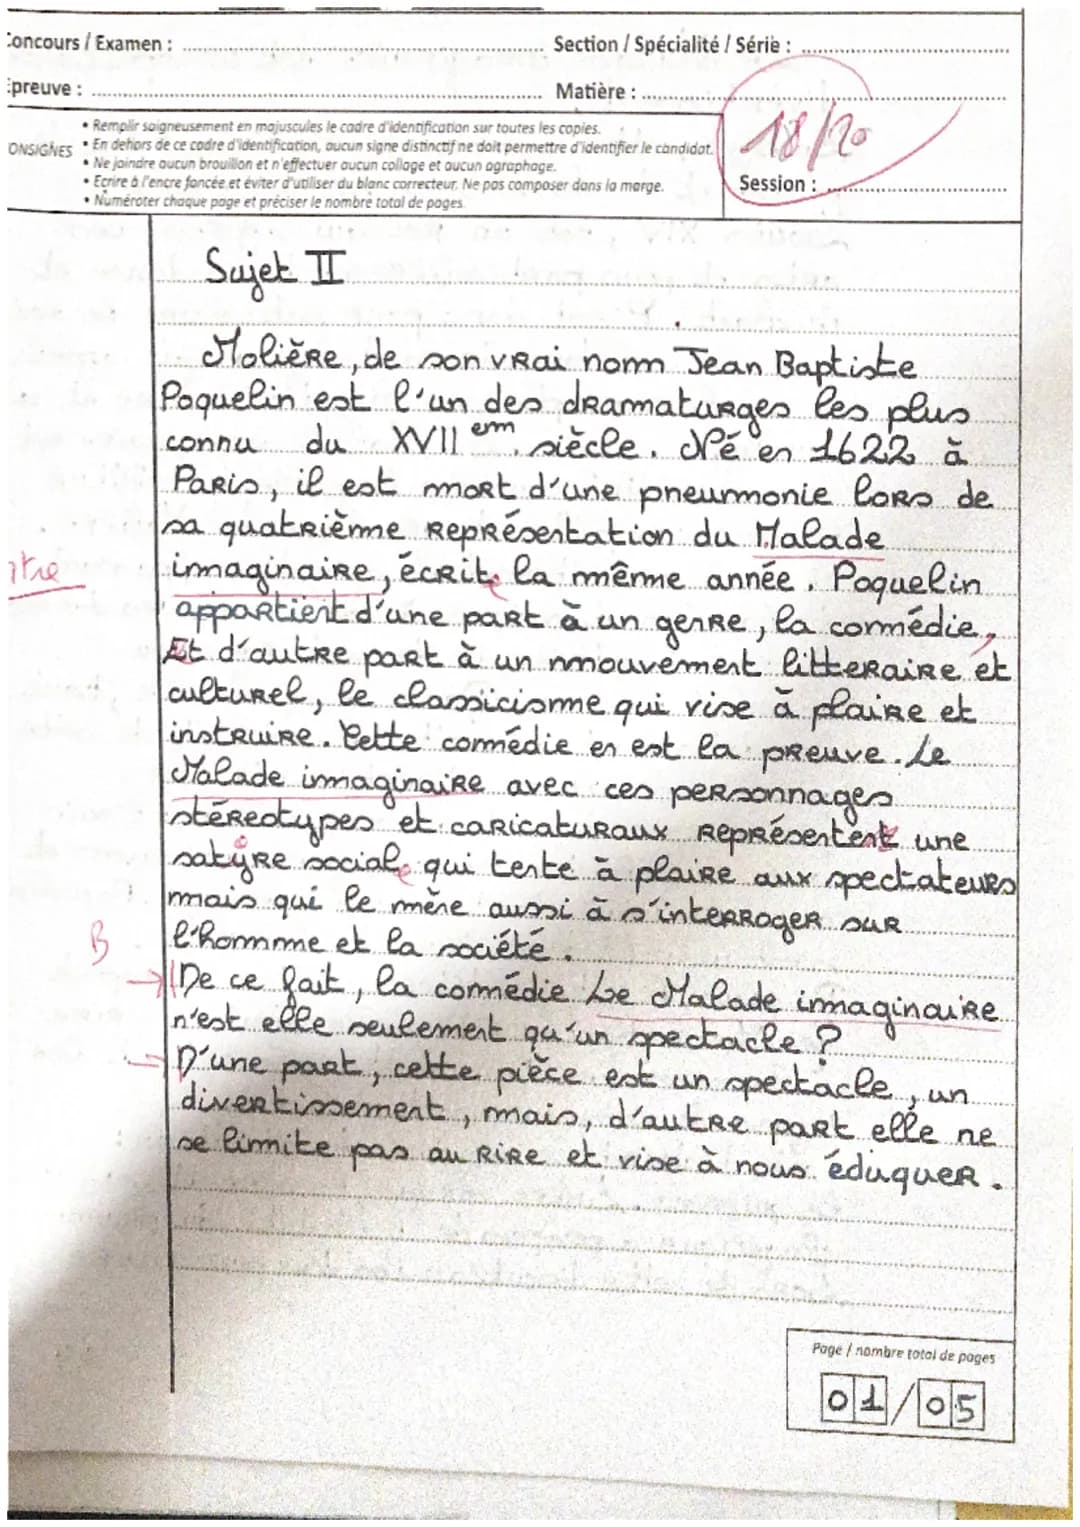 Concours / Examen : Section / Spécialité / Série :
Epreuve : Matière :
18/20
CONSIGNES
• Remplir soigneusement en majuscules le cadre d'identification sur toutes les copies.
• En dehors de ce cadre d'identification, aucun signe distinctif ne doit permettre d'identifier le candidat.
• Ne joindre aucun brouillon et n'effectuer aucun collage et aucun agraphage.
• Ecrire à l'encre foncée et éviter d'utiliser du blanc correcteur. Ne pas composer dans la marge.
• Numéroter chaque page et préciser le nombre total de pages.
Session :
Sujet II
Molière, de son vrai nom Jean Baptiste
Poquelin est l'un des dramaturges les plus
connu du XVII em siècle. Né en 1622 à
Paris, il est mort d'une pneumonie lors de
sa quatrième représentation du Malade
imaginaire, écrite la même année. Poquelin
appartient d'une part à un genre, la comédie,
Et d'autre part à un mouvement litteraire et
culturel, le classicisme qui vise à plaire et
instruire. Cette comédie en est la preuve. Le
Malade imaginaire avec ces personnages
stéreotypes et caricaturaux représentent une
satyre sociale qui tente à plaire aux spectateurs
mais qui le mène aussi à s'interroger sur
l'homme et la société.
B
De ce fait, la comédie Le Malade imaginaire
n'est elle seulement qu'un spectacle ?
D'une part, cette pièce est un spectacle, un
divertissement, mais, d'autre part elle ne
se limite pas au rire et vise à nous éduquer.
Page / nombre total de pages
01/05